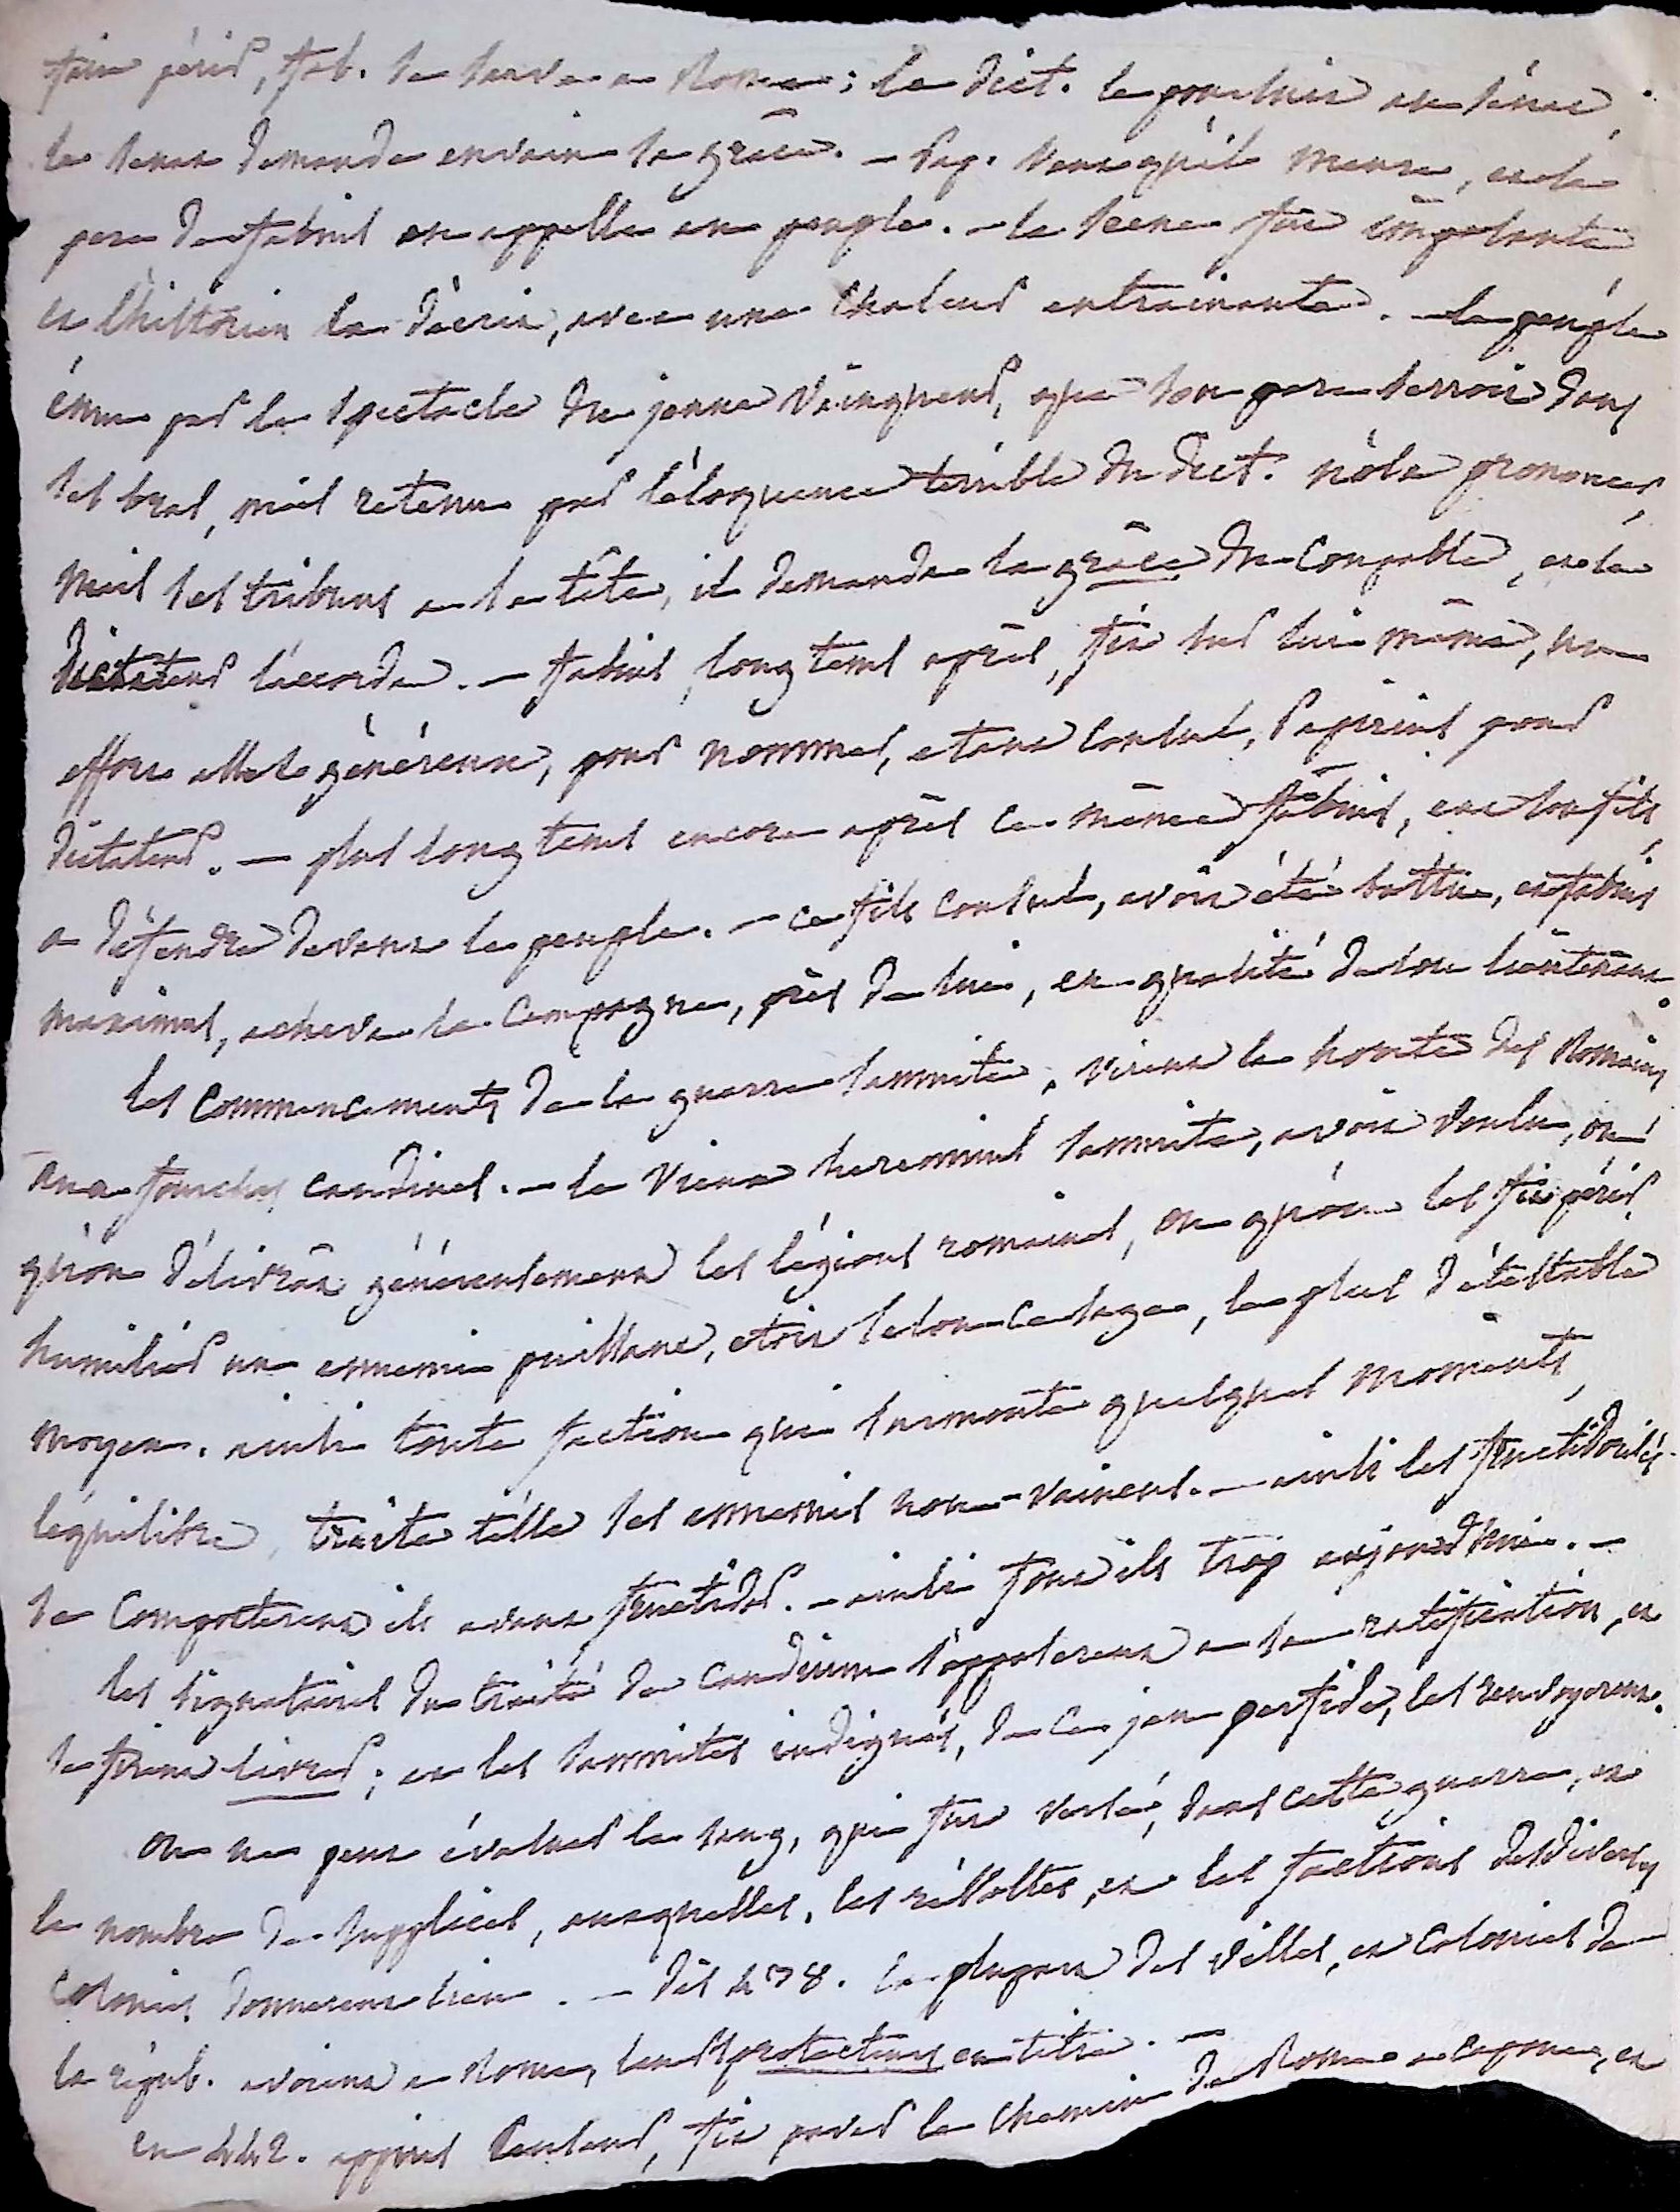 faire périr, fab. se sauve a Rome ; le dict. le poursuit au sénat,
le senat demande envain sa grâce. — Pap. veut qu'il meure, et le
pere de fabius en appelle au peuple. — la scene fut importante
et l'historien la décrit, avec une chaleur entrainante. — le peuple
ému par le spectacle du jeune vainqueur, que son pere serroit dans
ses bras, mais retenu par l'éloquence terrible du dict. n'ôse prononcer,
mais ses tribuns a la tête, il demande la grâce du coupable, et le
dictateur l'accorde. — fabius, long tems après, fit sur lui même, un
effort assés généreux, pour nommer, etant consul, Papirius pour
dictateur. — plus long tems encore après ce même fabius, eut son fils,
a défendre devant le peuple. — ce fils consul, avoit été battu, et fabius
maximus, acheva la campagne, près de lui, en qualité de son lieutenant.
les commencements de la guerre samnite, virent la honte des Romains
aux fourches caudines. — le vieux herennius samnite, avoit voulu, ou
qu'on délivrât généreusement les légions romaines, ou qu'on les fit périr.
humilier un ennemi puissant, etoit selon ce sage, le plus détestable
moyen. ainsi toute faction qui surmonte quelques moments
l'équilibre, traite t'elle ses ennemis non-vaincus. — ainsi les fructidorisés
se comporterent ils avant fructidor. — ainsi font ils trop aujourd'hui. —
les signataires du traité de caudium s'opposerent a sa ratification, et
se firent livrer ; et les samnites indignés, de ce jeu perfide, les renvoyerent.
on ne peut évaluer le sang, qui fut versé, dans cette guerre, et
le nombre de supplices, auxquelles, les révoltes, et les factions des diverses
colonies donnerent lieu. — dès 438. la plupart des villes, et colonies de
la répub. avoient a Rome, leurs protecteurs en titre. —
en 442. appius censeur, fit paver le chemin de Rome a capoue, et